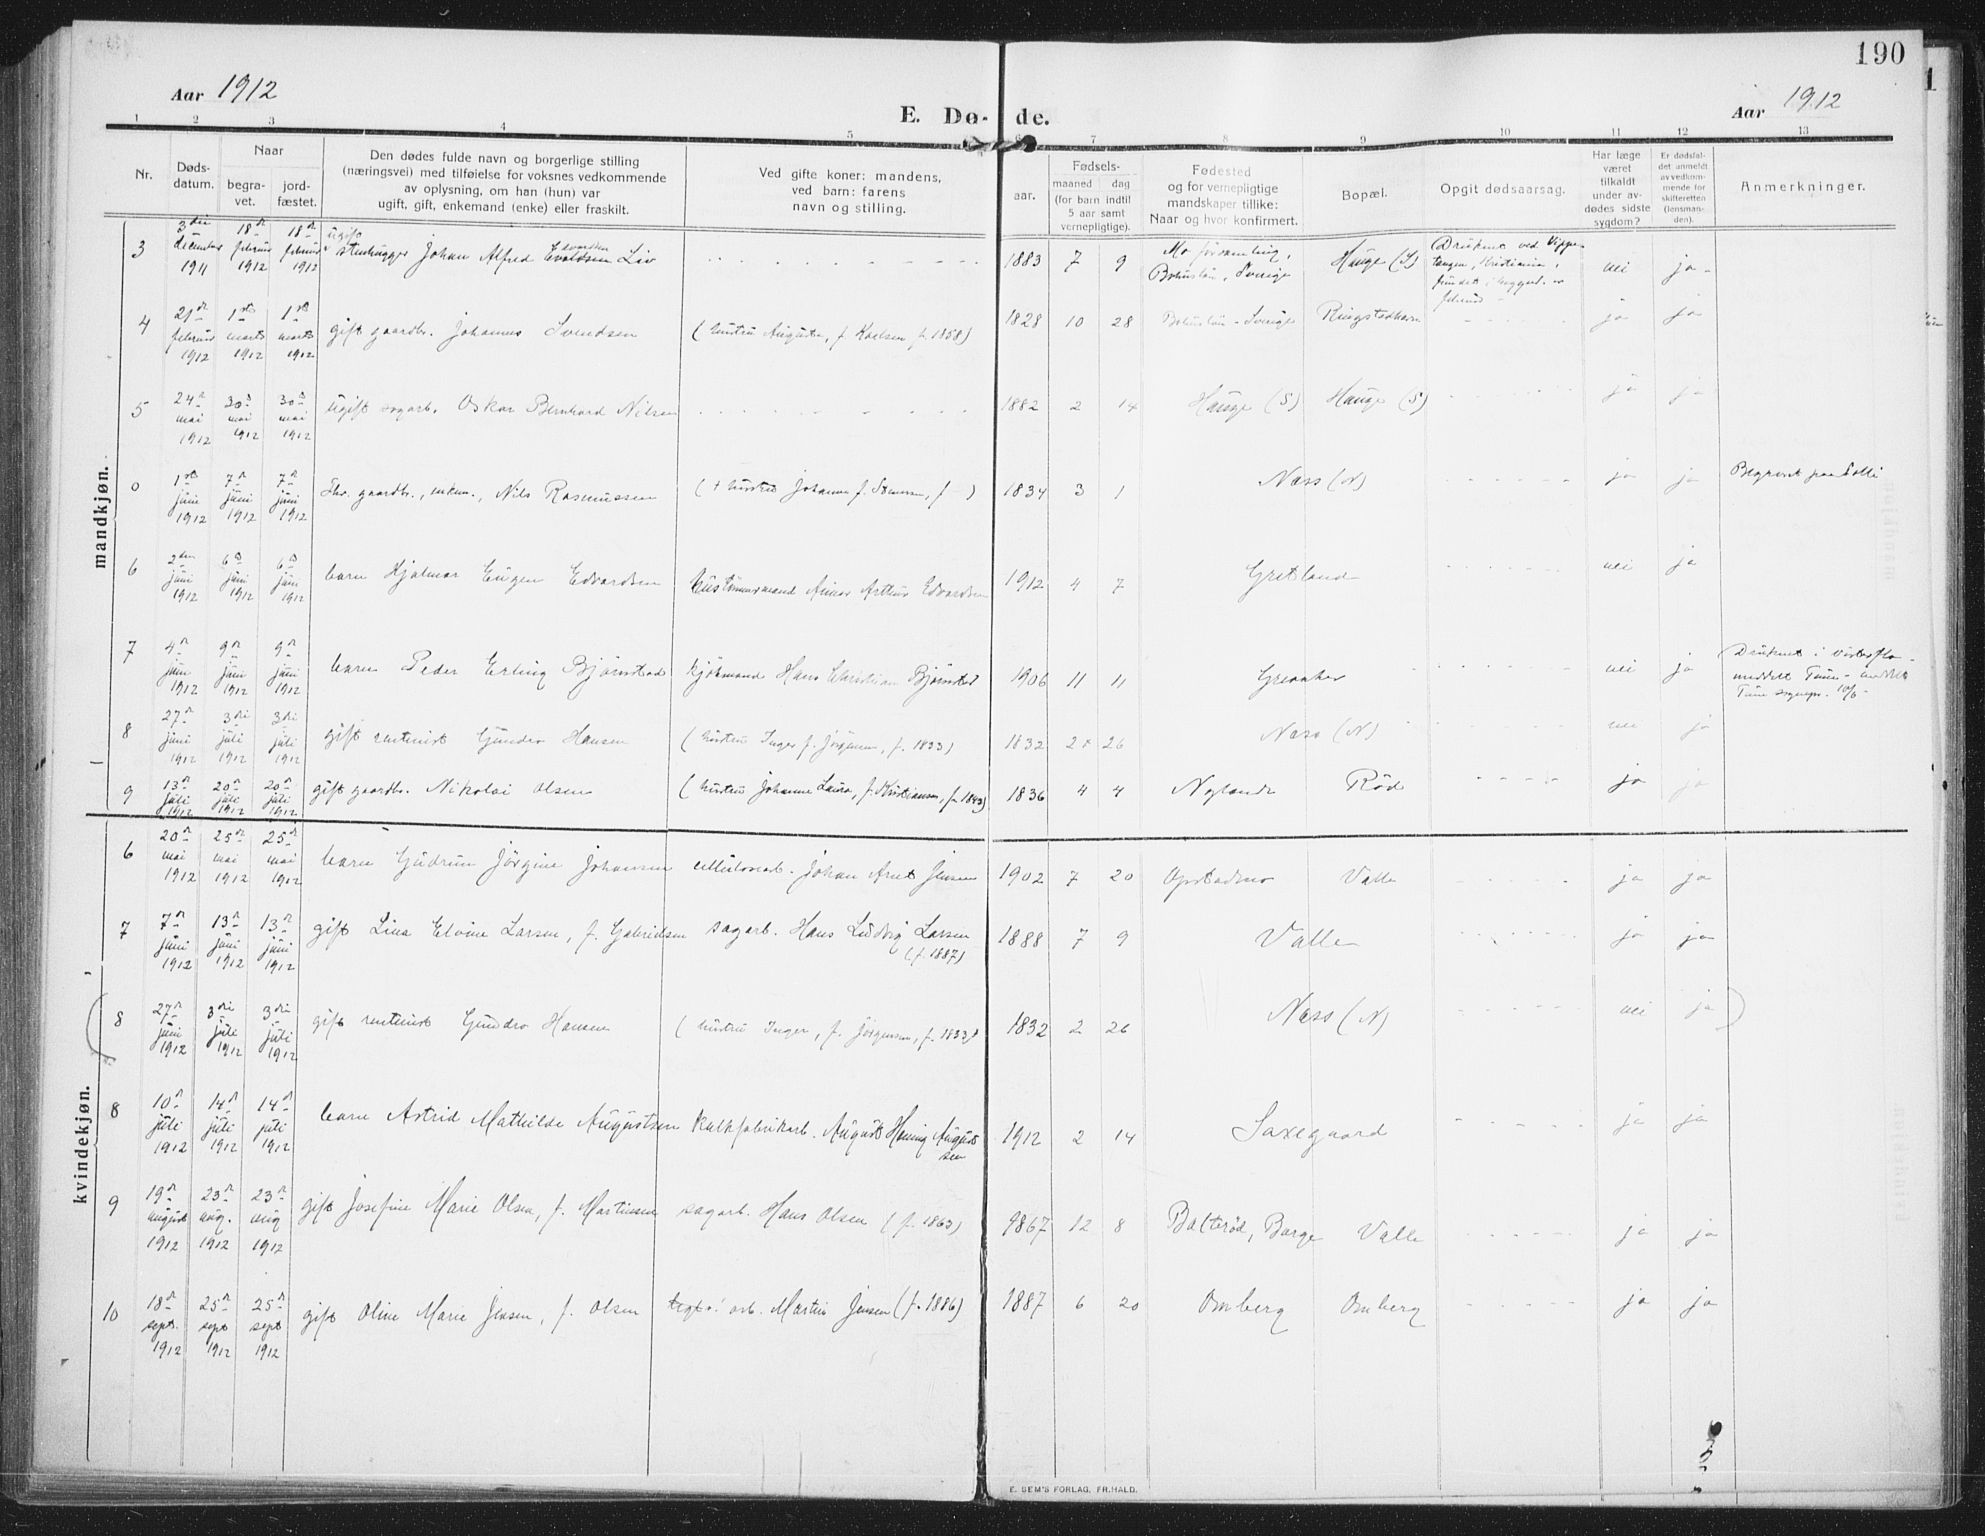 190
Aar 1912
E. Dø-
de.
Aar 1912
1 2 3 4 5 6 7 8 9 10 11 12 13
Nr.
Døds-
datum.
Naar
begra-
vet.
jord-
fæstet.
Den dødes fulde navn og borgerlige stilling
(næringsvei) med tilføielse for voksnes vedkommende
av oplysning, om han (hun) var
ugift, gift, enkemand (enke) eller fraskilt.
Ved gifte koner: mandens,
ved barn: farens
navn og stilling.
aar.
Fødsels-
maaned
dag
(for barn indtil
5 aar samt
vernepligtige).
Fødested
og for vernepligtige
mandskaper tillike:
Naar og hvor konfirmert.
Bopæl.
Opgit dødsaarsag.
Har læge
været
tilkaldt
under av-
dødes sidste
sygdom?
Er dødsfal-
det anmeldt
av vedkom-
mende for
skifteretten
(lensman-
den).
Anmerkninger.
mandkjøn.
3
3die december 1911
18de februar 1912
18de februar 1912
ugift stenhugger Johan Alfred Evaldsen Liv
1883 7 9
Mo forsamling,
Bohuslän, Sverige
Hauge (S)
Druknet ved Vippe-
tangen, Kristiania,
fundet
februar
nei ja
4
21de februar 1912
1ste marts 1912
1ste marts 1912
gift gaardbr. Johannes Svendsen
(hustru Augusta, f. Karlsen, f. 1858)
1828 10 28
Bohuslän - Sverige
Ringstadhavn
ja ja
5
24de mai 1912
30de mai 1912
30de mai 1912
ugift sagarb. Oskar Bernhard Nilsen
1882 2 14
Hauge (S) Hauge (S)
ja ja
0
1ste juni 1912
7de juni 1912
7de juni 1912
fhv. gaardbr., enkem., Nils Rasmussen
(+ hustru Johanne f. f. -)
1834 3 1
Næss (N)
ja ja
Begravet paa
6
2den juni 1912
6te juni 1912
6te juni 1912
barn Hjalmar Eugen Edvardsen
hustømmermand Arthur Edvardsen
1912 4 7
Gretland
nei ja
7
4de juni 1912
9de juni 1912
9de juni 1912
barn Peder Erling Bjørnstad
kjøbmand Hans Christian Bjørnstad
1906 11 11
Greaaker
nei ja
Druknet i
meddelt Tune
Tune sognepr. 10/6 -
8
27de juni 1912
3die juli 1912
3die juli 1912
gift rentenist Gundro Hansen
(hustru Inger f. Jörgensen, f. 1833)
1832 2 26
Næss (N)
nei ja
9
13de juli 1912
20de juli 1912
20de juli 1912
gift gaardbr. Nikolai Olsen
(hustru Johanne Laura, f. Kristiansen, f. 1843)
1836 4 4
Nylande Röd
ja ja
kvindekjøn.
6
20de mai 1912
25de mai 1912
25de mai 1912
barn Gudrun Jörgine Johansen
cellulosearb. Johan Arnt Jensen
1902 7 20
Opstadmo Valle
ja ja
7
7de juni 1912
13de juni 1912
13de juni 1912
gift Lina Elvine Larsen, f. Gabrielsen
sagarb. Hans Ludvig Larsen
(f. 1887)
1888 7 9
Valle
ja ja
8
27de juni 1912
3die juli 1912
3die juli 1912
gift rentenist Gundro Hansen
(hustru Inger, f. Jörgensen, f. 1833)
1832 2 26
Næss (N)
nei ja
8
10de juli 1912
14de juli 1912
14de juli 1912
barn Astrid Mathilde Augustsen
kalkfabrikarb. August Henning August
sen
1912 2 14
Saxegaard
ja ja
9
19de august 1912
23de aug. 1912
23de aug 1912
gift Josefine Marie Olsen, f. Martinsen
sagarb. Hans Olsen (f. 1863)
1867 12 8
Balterød, Borge Valle
ja ja
10
18de sept. 1912
25de sept 1912
25de sept 1912
gift Oline Marie Jensen, f. Olsen
arb. Martin Jensen (f. 1886)
1887 6 20
Omberg Omberg
ja ja
E. SEM'S FORLAG, FR.HALD.